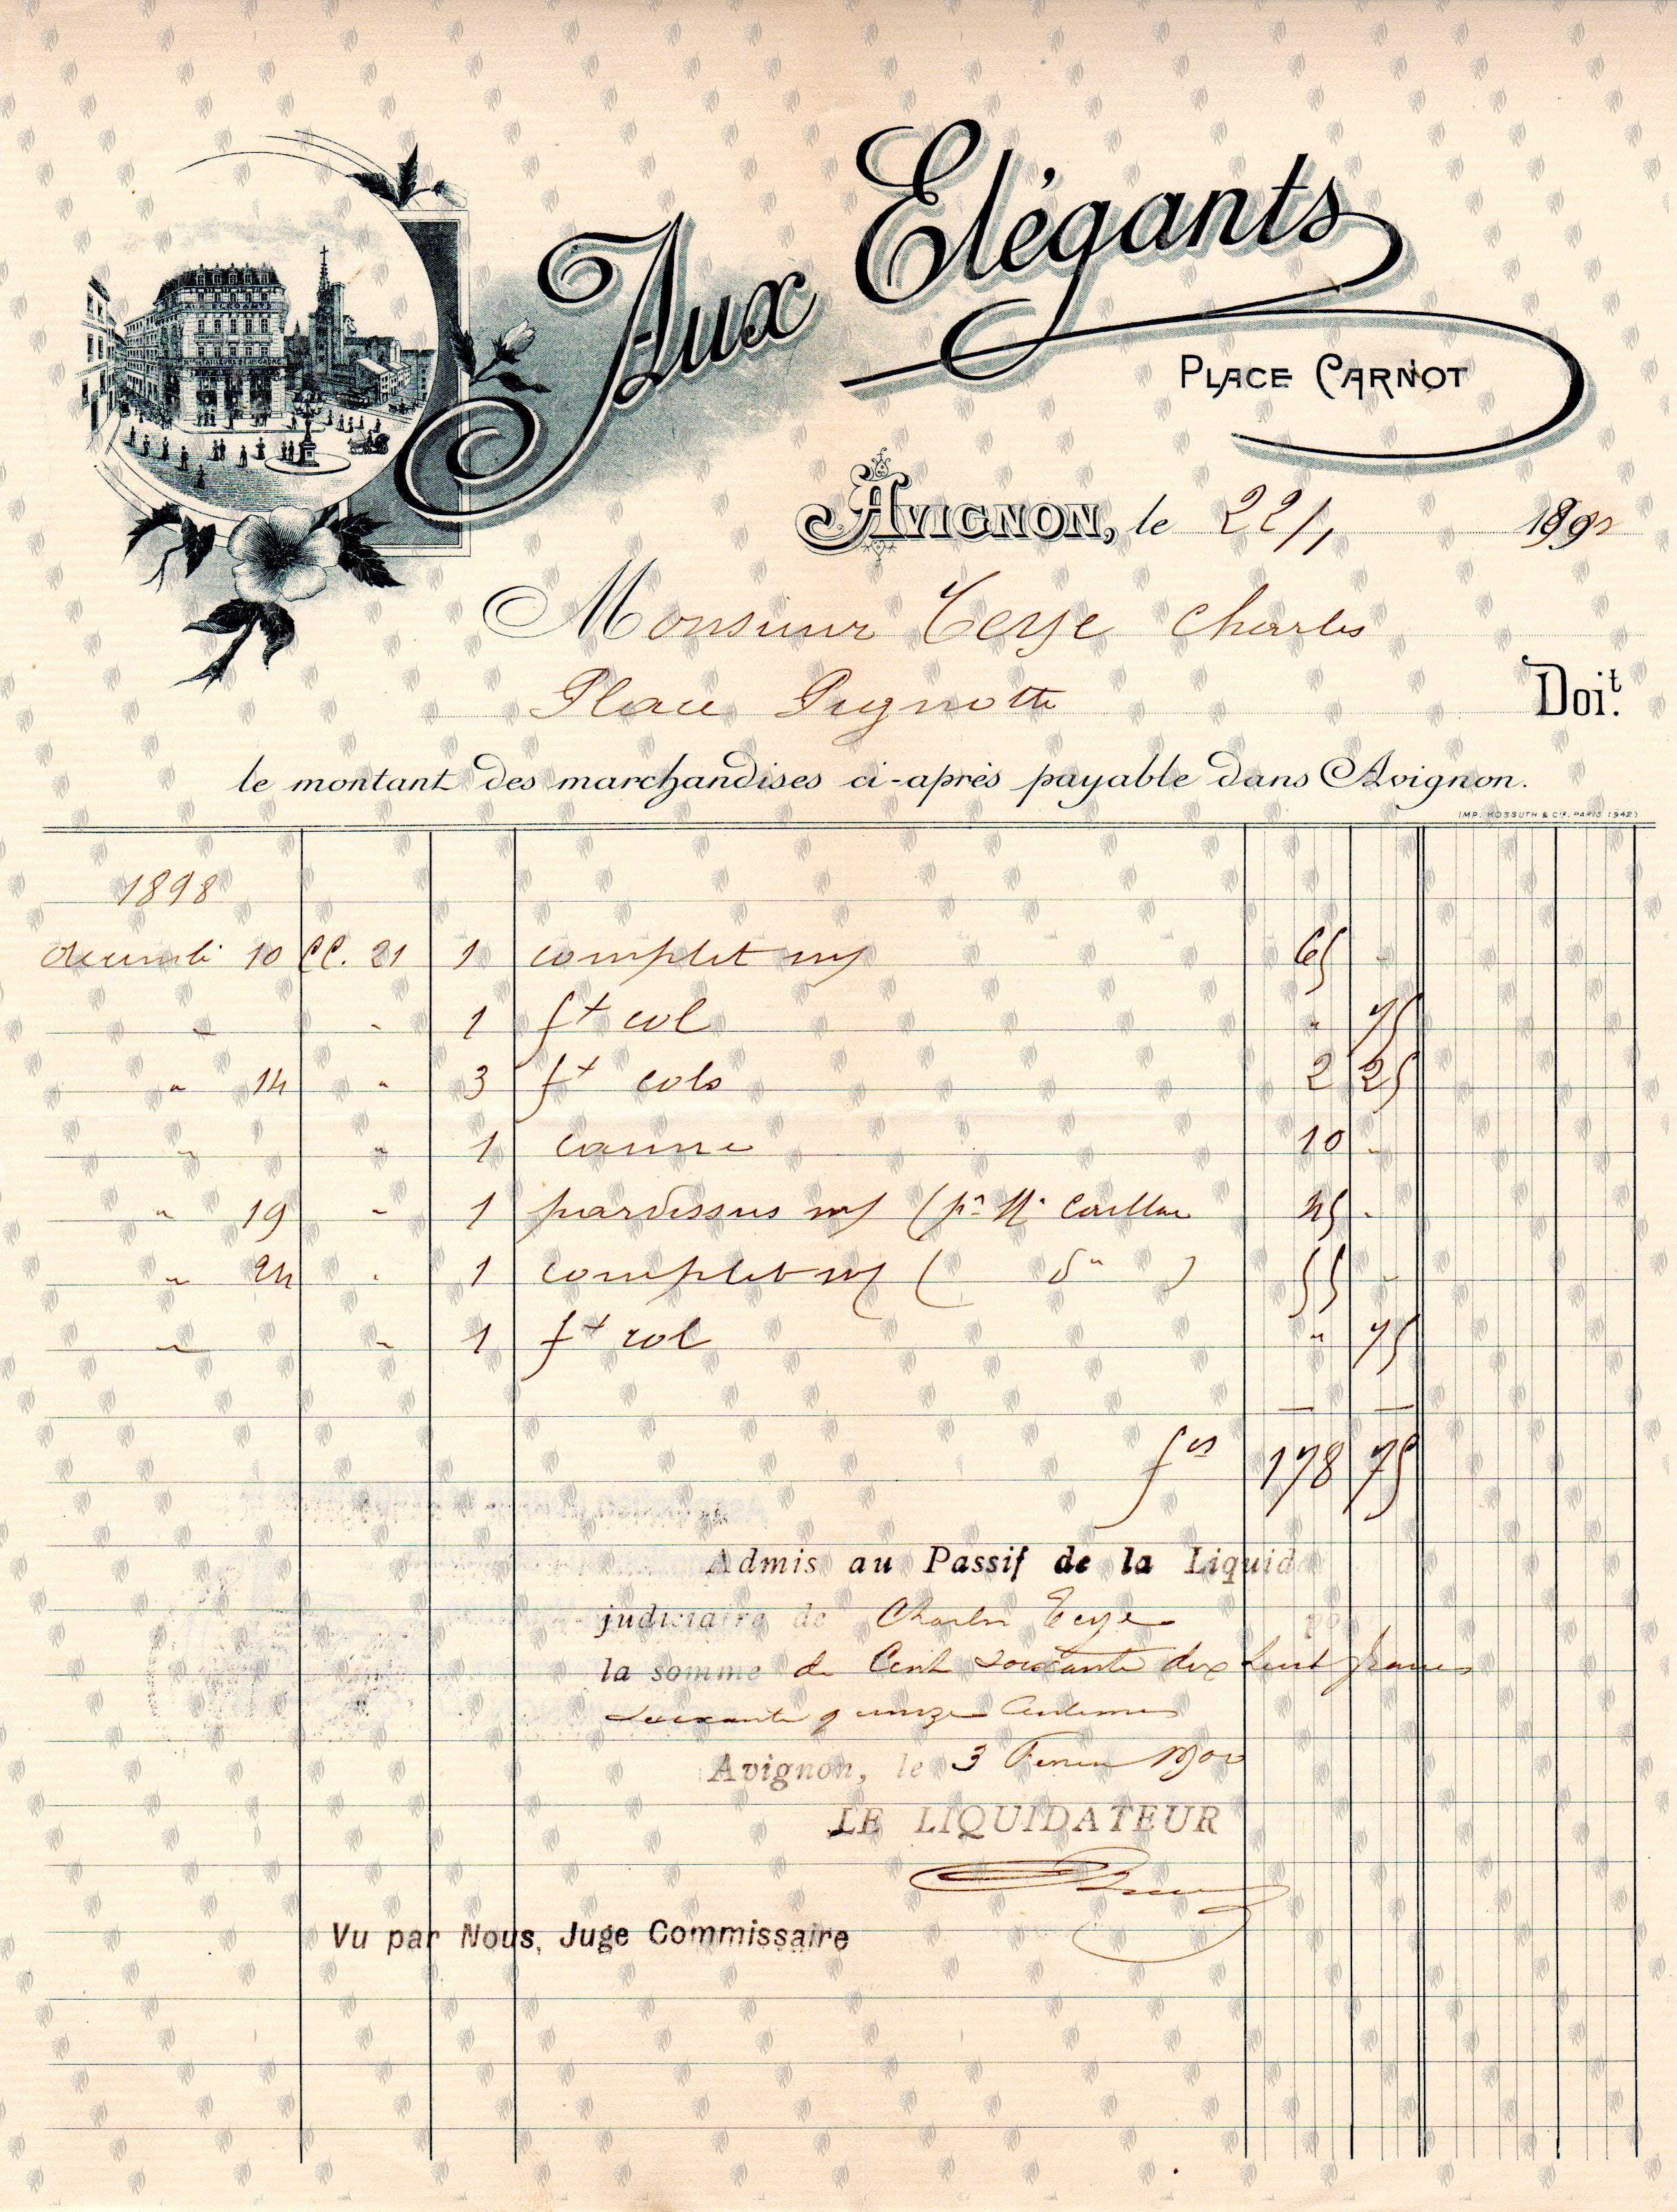 Aux Elégants
PLACE CARNOT
AVIGNON, le 22/1 189
Monsieur Teye Charles
Place Pignotte
Doi.t
le montant des marchandises ci-après payable dans Avignon.
IMP. KOSSUTH & Cie. PARIS (942)
1898
décembre 10 CC. 21 1 complet 65 -
" " 1 ft col " 75
" 14 " 3 ft cols 2 25
" " 1 canne 10 -
" 19 " 1 pardessus (pr Mr 45 -
" 24 " 1 complet ( do ) 55 -
" " 1 ft col " 75
fcs 178 75
Admis au Passif de la Liquid
judiciaire de Charles Teye po
la somme de Cent soixante dix huit francs
soixante quinze centimes
Avignon, le 3 1900
LE LIQUIDATEUR
Vu par Nous, Juge Commissaire